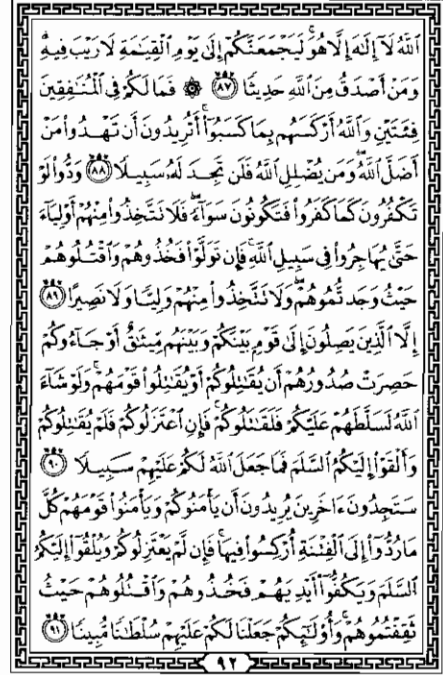 ٱللَّهُ لَآ إِلَٰهَ إِلَّا هُوَ ۚ لَيَجْمَعَنَّكُمْ إِلَىٰ يَوْمِ ٱلْقِيَٰمَةِ لَا رَيْبَ فِيهِ ۗ
وَمَنْ أَصْدَقُ مِنَ ٱللَّهِ حَدِيثًا ٨٧ ۞ فَمَا لَكُمْ فِى ٱلْمُنَٰفِقِينَ
فِئَتَيْنِ وَٱللَّهُ أَرْكَسَهُم بِمَا كَسَبُوٓا۟ ۚ أَتُرِيدُونَ أَن تَهْدُوا۟ مَنْ
أَضَلَّ ٱللَّهُ ۖ وَمَن يُضْلِلِ ٱللَّهُ فَلَن تَجِدَ لَهُۥ سَبِيلًا ٨٨ وَدُّوا۟ لَوْ
تَكْفُرُونَ كَمَا كَفَرُوا۟ فَتَكُونُونَ سَوَآءً ۖ فَلَا تَتَّخِذُوا۟ مِنْهُمْ أَوْلِيَآءَ
حَتَّىٰ يُهَاجِرُوا۟ فِى سَبِيلِ ٱللَّهِ ۚ فَإِن تَوَلَّوْا۟ فَخُذُوهُمْ وَٱقْتُلُوهُمْ
حَيْثُ وَجَدتُّمُوهُمْ ۖ وَلَا تَتَّخِذُوا۟ مِنْهُمْ وَلِيًّا وَلَا نَصِيرًا ٨٩
إِلَّا ٱلَّذِينَ يَصِلُونَ إِلَىٰ قَوْمٍۭ بَيْنَكُمْ وَبَيْنَهُم مِّيثَٰقٌ أَوْ جَآءُوكُمْ
حَصِرَتْ صُدُورُهُمْ أَن يُقَٰتِلُوكُمْ أَوْ يُقَٰتِلُوا۟ قَوْمَهُمْ ۚ وَلَوْ شَآءَ
ٱللَّهُ لَسَلَّطَهُمْ عَلَيْكُمْ فَلَقَٰتَلُوكُمْ ۚ فَإِنِ ٱعْتَزَلُوكُمْ فَلَمْ يُقَٰتِلُوكُمْ
وَأَلْقَوْا۟ إِلَيْكُمُ ٱلسَّلَمَ فَمَا جَعَلَ ٱللَّهُ لَكُمْ عَلَيْهِمْ سَبِيلًا ٩٠
سَتَجِدُونَ ءَاخَرِينَ يُرِيدُونَ أَن يَأْمَنُوكُمْ وَيَأْمَنُوا۟ قَوْمَهُمْ كُلَّ
مَا رُدُّوٓا۟ إِلَى ٱلْفِتْنَةِ أُرْكِسُوا۟ فِيهَا ۚ فَإِن لَّمْ يَعْتَزِلُوكُمْ وَيُلْقُوٓا۟ إِلَيْكُمُ
ٱلسَّلَمَ وَيَكُفُّوٓا۟ أَيْدِيَهُمْ فَخُذُوهُمْ وَٱقْتُلُوهُمْ حَيْثُ
ثَقِفْتُمُوهُمْ ۚ وَأُو۟لَٰٓئِكُمْ جَعَلْنَا لَكُمْ عَلَيْهِمْ سُلْطَٰنًا مُّبِينًا ٩١
٩٢